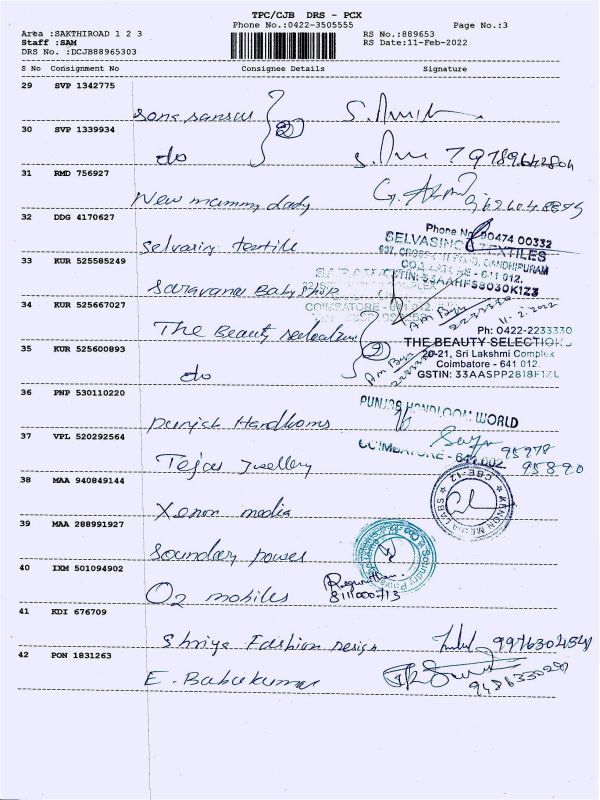 TPC/CJB DRS - PCX
Phone No.:0422-3505555 Page No.:3
Area :SAKTHIROAD 1 2 3 RS No.:889653
Staff :SAM RS Date:11-Feb-2022
DRS No. :DCJB88965303
S No Consignment No Consignee Details Signature
29 SVP 1342775
Sona sansar 2
30 SVP 1339934
do
31 RMD 756927
New mummy dady
32 DDG 4170627
Phone No 90474 00332
SELVASING TEXTILES
Selvasing textile
GANDHIPURAM
33 KUR 525585249
GSTIN: 33AAHFS8030K1Z3
Saravana Baby Shop
34 KUR 525667027
COIMBATORE
11.2.2022
2233330
Ph: 0422-2233330
The Beauty 2
THE BEAUTY SELECTION
35 KUR 525600893
20-21, Sri Lakshmi Complex
Coimbatore - 641 012.
do
GSTIN: 33AASPP2818F1ZL
36 PNP 530110220
PUNJAB HANDLOOM WORLD
Punjab Handlooms
37 VPL 520292564
COIMBATORE - 641 002
95978
95890
Tejas Jwellery
38 MAA 940849144
XENON MEDIA LABS
CBE-12
Xenon media
39 MAA 288991927
Soundary powes
40 IXM 501094902
Ragunathan
8111000713
O2 mobiles
41 KDI 676709
Shriya Fashion Design
42 PON 1831263
E. Babukumar